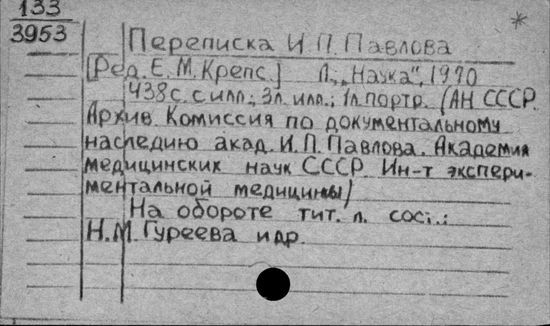 133
3953
*
Переписка И.П. Павлова
[Ред. Е.М. Крепс.] Л., "Наука", 1970
438 с. с илл.; 3 л. илл.; 1 л. портр. (АН СССР.
Архив. Комиссия по документальному
наследию акад. И.П. Павлова. Академия
медицинских наук СССР. Ин-т экспери-
ментальной медицины)
На обороте тит. л. сост.:
Н.М. Гуреева и др.